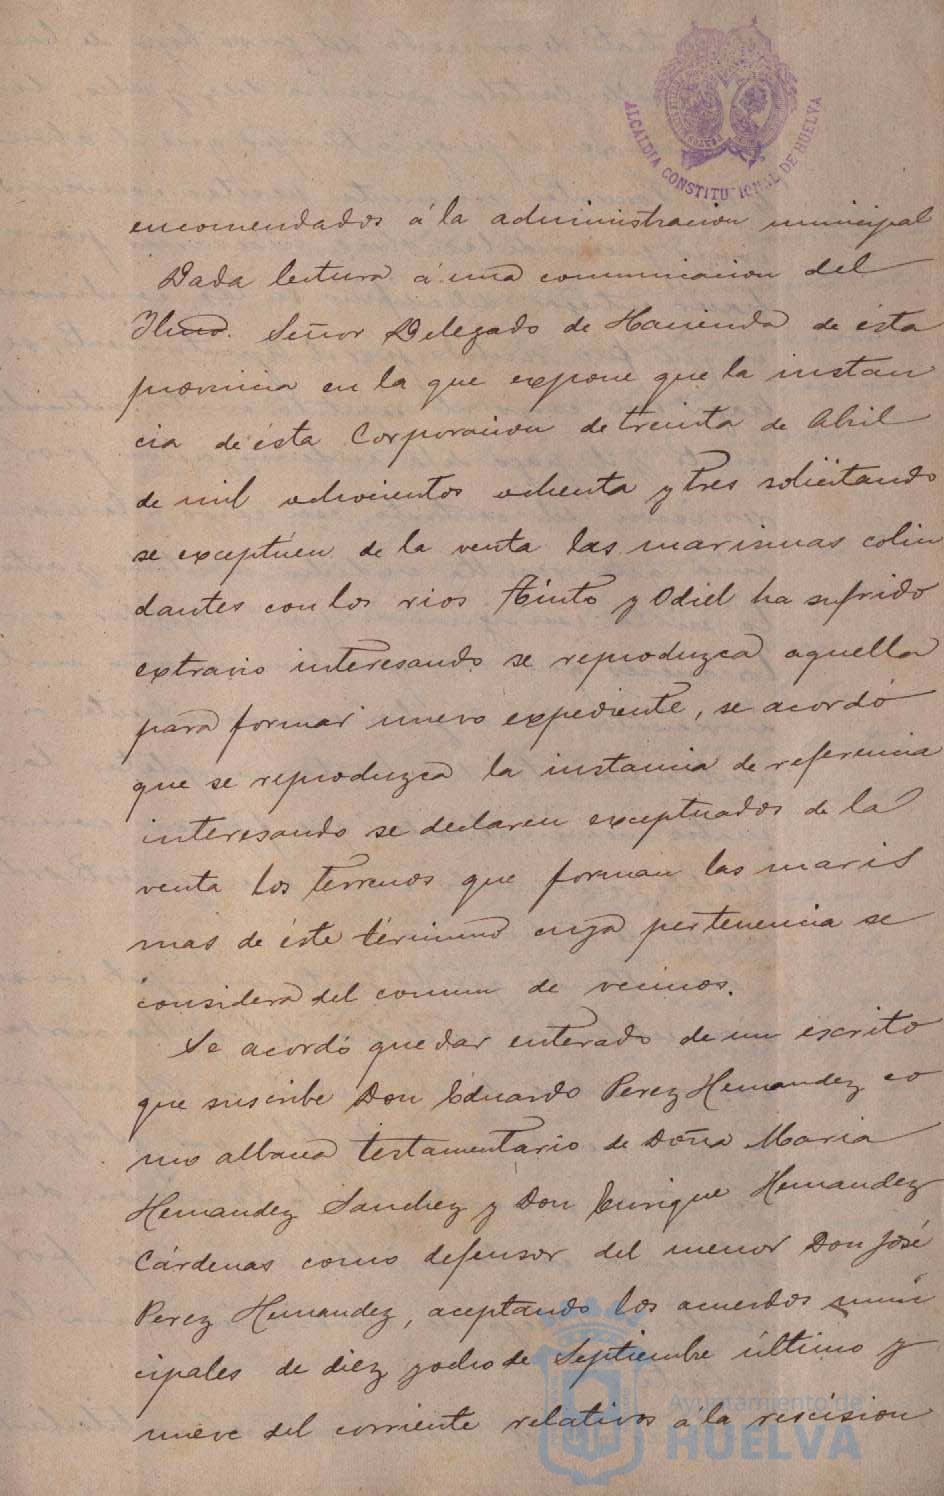 ALCALDIA CONSTITUCIONAL DE HUELVA
encomendados á la administracion municipal
Dada lectura á una comunicacion del
Ilmo. Señor Delegado de Hacienda de ésta
provincia en la que expone que la instan
cia de ésta Corporacion de treinta de Abril
de mil ochocientos ochenta y tres solicitando
se exceptúen de la venta las marismas colin
dantes con los rios Tinto y Odiel ha sufrido
extravio interesando se reproduzca aquella
para formar nuevo expediente, se acordó
que se reproduzca la instancia de referencia
interesando se declaren exceptuados de la
venta los terrenos que forman las maris
mas de éste término cuya pertenencia se
considera del comun de vecinos.
Se acordó quedar enterado de un escrito
que suscribe Don Eduardo Perez Hernandez co
mo albacea testamentario de Doña Maria
Hernandez Sanchez y Don Enrique Hernandez
Cárdenas como defensor del menor Don José
Perez Hernandez, aceptando los acuerdos muni
cipales de diez y ocho de Septiembre último y
nueve del corriente relativos a la rescision
Ayuntamiento de
HUELVA